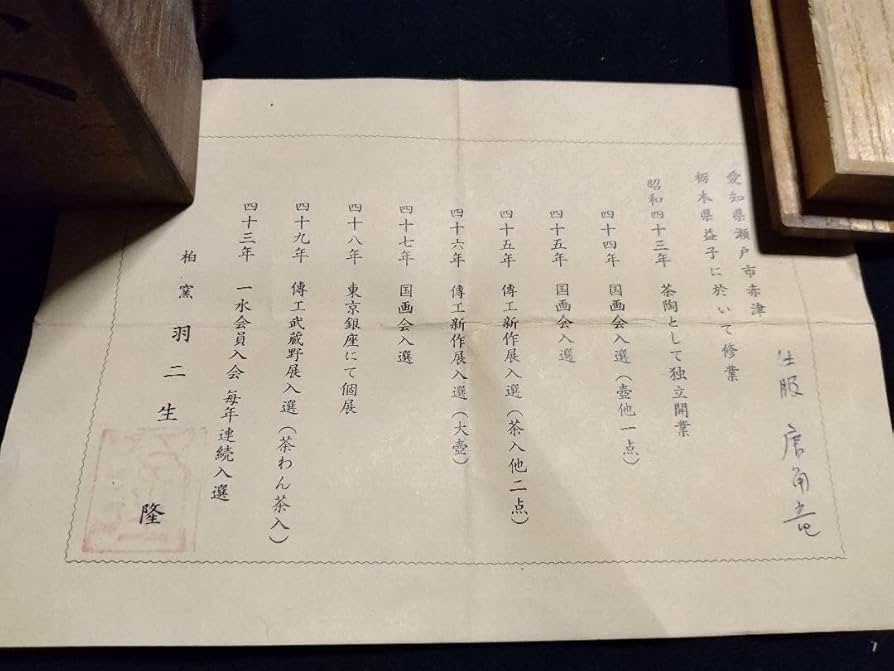 愛知県瀬戸市赤津
栃木県益子に於いて修業
昭和四十三年 茶陶として独立開業
四十四年 国画会入選(壺他一点)
四十五年 国画会入選
四十五年 傳工新作展入選(茶入他二点)
四十六年 傳工新作展入選(大壺)
四十七年 国画会入選
四十八年 東京銀座にて個展
四十九年 傳工武蔵野展入選(茶わん茶入)
四十三年 一水会員入会 毎年連続入選
柏窯 羽二生 隆